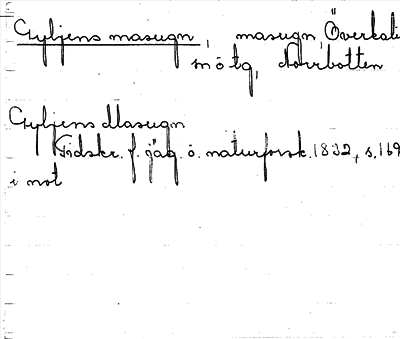 Gyljens masugn, masugn, Överkali
m ö tg, Norrbotten
Gyljens Masugn
Tidskr. f. jäg. o. naturforsk. 1832, s. 169
i not